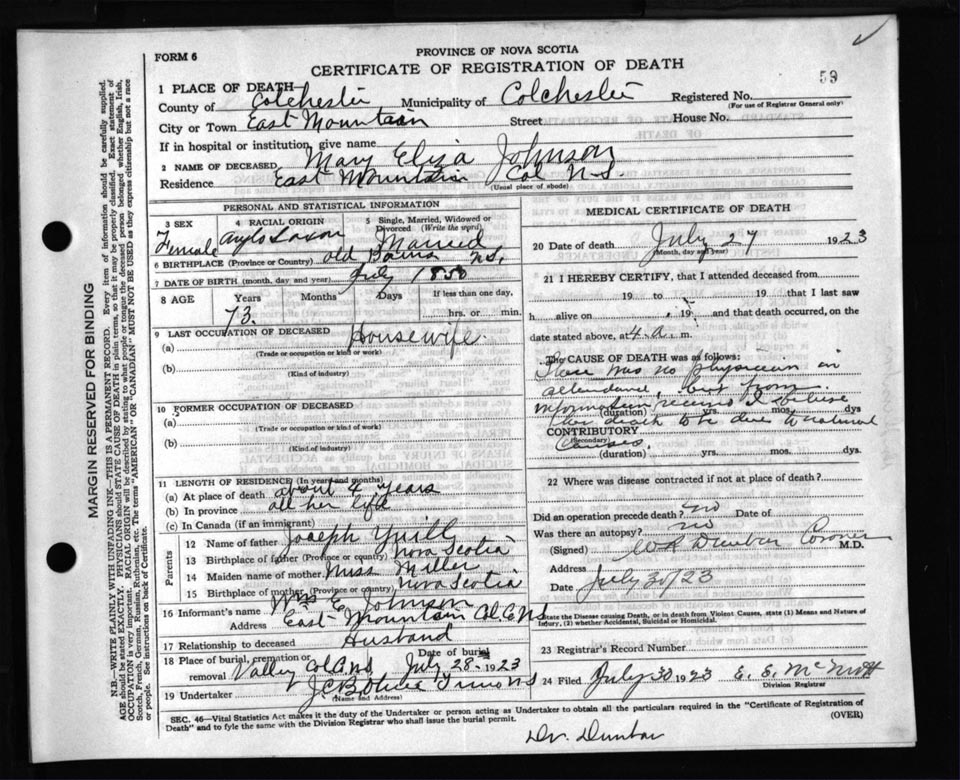 PROVINCE OF NOVA SCOTIA
FORM 6
CERTIFICATE OF REGISTRATION OF DEATH
59
1 PLACE OF DEATH
County of Colchester Municipality of Colchester Registered No.
(For use of Registrar General only)
City or Town East Mountain Street House No.
If in hospital or institution, give name
2 NAME OF DECEASED Mary Eliza Johnson
Residence East Mountain Col. N.S.
(Usual place of abode)
PERSONAL AND STATISTICAL INFORMATION
3 SEX 4 RACIAL ORIGIN 5 Single, Married, Widowed or Divorced (Write the word)
Female Anglo Saxon Married
6 BIRTHPLACE (Province or Country) Old Barns N.S.
7 DATE OF BIRTH (month, day and year) July 1850
8 AGE Years Months Days If less than one day,
73 hrs. or min.
9 LAST OCCUPATION OF DECEASED
(a) Housewife
(Trade or occupation or kind or work)
(b)
(Kind of industry)
10 FORMER OCCUPATION OF DECEASED
(a)
(Trade or occupation or kind of work)
(b)
(Kind of industry)
11 LENGTH OF RESIDENCE (In years and months)
(a) At place of death about 4 years
(b) In province all her life
(c) In Canada (if an immigrant)
Parents
12 Name of father Joseph Yuill
13 Birthplace of father (Province or country) Nova Scotia
14 Maiden name of mother Miss Miller
15 Birthplace of mother (Province or country) Nova Scotia
16 Informant's name Wm E. Johnson
Address East Mountain Col. Co N.S
17 Relationship to deceased Husband
18 Place of burial, cremation or removal Valley Col. Co N.S Date of burial July 28 1923
19 Undertaker Truro N S
(Name and Address)
MEDICAL CERTIFICATE OF DEATH
20 Date of death July 27 1923
(Month, day and year)
21 I HEREBY CERTIFY, that I attended deceased from
19 to 19 that I last saw
h alive on , 19 and that death occurred, on the
date stated above, at 4. a. m.
The CAUSE OF DEATH was as follows:
There was no physician in
attendance but from
information received I believe
(duration) yrs. mos. dys
her death to be due to natural
CONTRIBUTORY causes.
(Secondary)
(duration) yrs. mos. dys.
22 Where was disease contracted if not at place of death?
Did an operation precede death? no Date of
Was there an autopsy? no
(Signed) Dunbar Coroner M.D.
Address
Date July 30/23
State the Disease causing Death, or in death from Violent Causes, state (1) Means and Nature of
Injury, (2) whether Accidental, Suicidal or Homicidal.
23 Registrar's Record Number
24 Filed July 30 1923 E. E. McNutt
Division Registrar
SEC. 46—Vital Statistics Act makes it the duty of the Undertaker or person acting as Undertaker to obtain all the particulars required in the "Certificate of Registration of
Death" and to fyle the same with the Division Registrar who shall issue the burial permit.
(OVER)
Dr. Dunbar
MARGIN RESERVED FOR BINDING
N.B.—WRITE PLAINLY WITH UNFADING INK—THIS IS A PERMANENT RECORD. Every item of information should be carefully supplied.
AGE should be stated EXACTLY. PHYSICIANS should STATE CAUSE OF DEATH in plain terms, so that it may be properly classified. Exact statement of
OCCUPATION is very important. RACIAL ORIGIN will be described by stating to what people or tongue the deceased person belonged whether English, Irish,
Scotch, French, German, Russian, Ruthenian, etc. The terms "AMERICAN" OR "CANADIAN" MUST NOT BE USED as they express citizenship but not a race
or people. See instructions on back of Certificate.